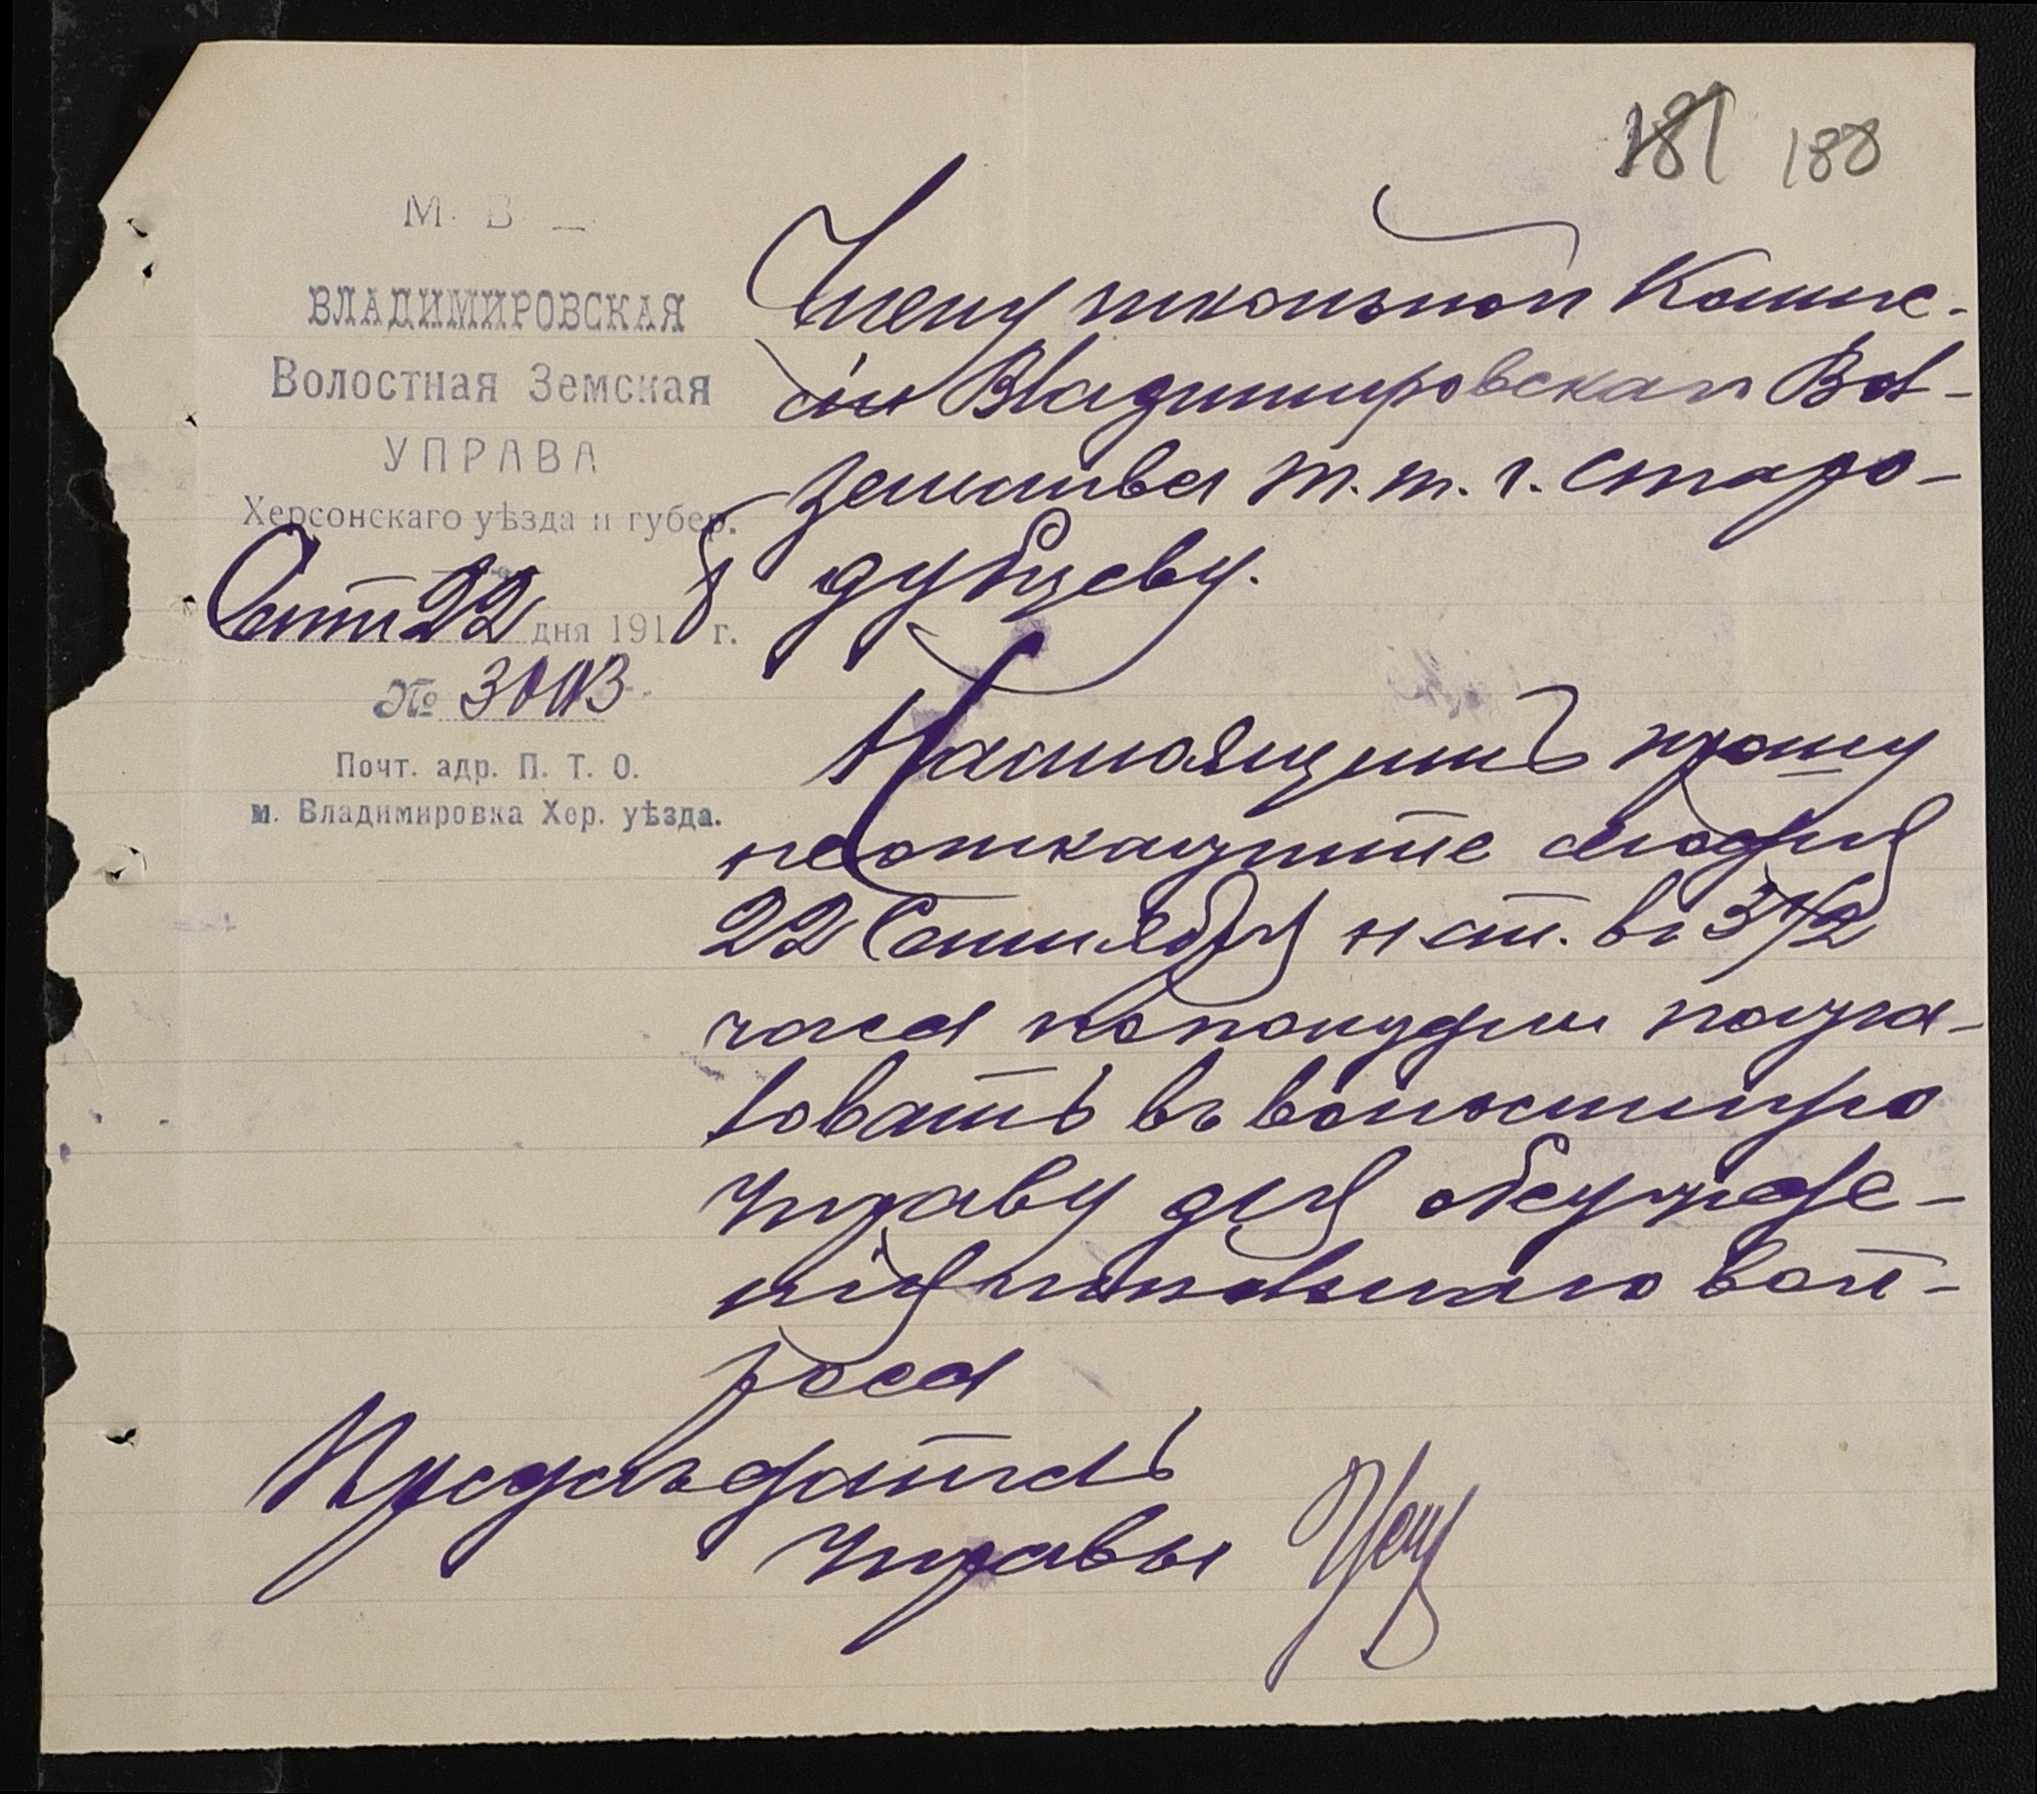 181 188
М. В.
ВЛАДИМИРОВСКАЯ
Волостная Земская
УПРАВА
Херсонскаго уѣзда и губер.
Сент 22 дня 1918 г.
№ 3003
Почт. адр. П. Т. О.
м. Владимировка Хер. уѣзда.
Члену школьной Комис-
сіи Владимировскаго Вол-
земства т. т. г. Старо-
дубцеву.
Настоящимъ прошу
неоткажите сегодня
22 Сентября н. ст. въ 3 1/2
часа пополудни пожа-
ловать въ волостную
управу для обсужде-
нія школьнаго воп-
роса
Предсѣдатель
Управы